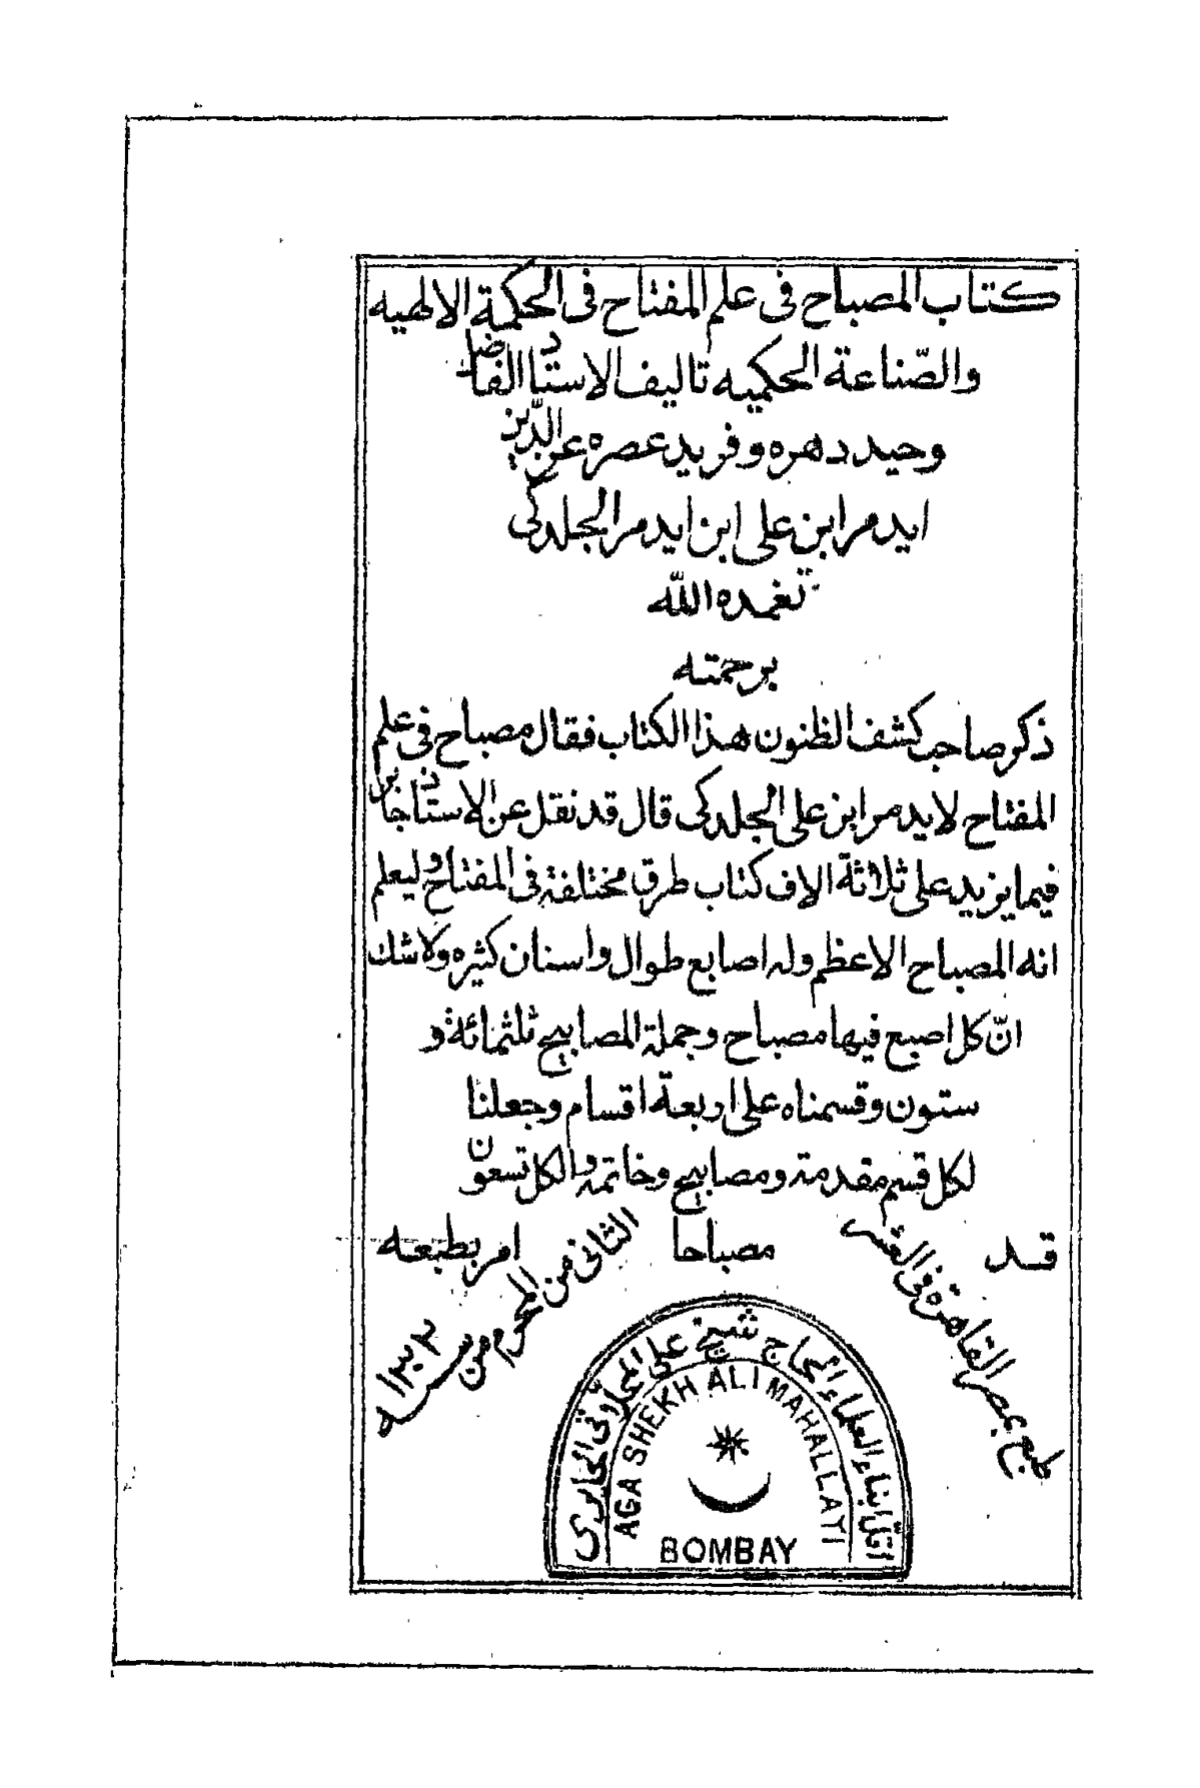 كتاب المصباح فى علم المفتاح فى الحكمة الالهيه
والصّناعة الحكميه تاليف الاستاد الفاضل
وحيد دهره وفريد عصره عز الدّين
ايدمر ابن على ابن ايدمر الجلدكى
تغمده اللّه
برحمته
ذكر صاحب كشف الظنون هذا الكتاب فقال مصباح فى علم
المفتاح لايدمر ابن على الجلدكى قال قد نقل عن الاستاذ جابر
فيما يزيد على ثلاثة الاف كتاب طرق مختلفة فى المفتاح وليعلم
انه المصباح الاعظم وله اصابع طوال واسنان كثيره ولاشك
انّ كل اصبع فيها مصباح وجملة المصابيح ثلثمائة و
ستون وقسمناه على اربعة اقسام وجعلنا
لكل قسم مقدمة ومصابيح وخاتمه والكل تسعون
مصباحا
قد
امر بطبعه
طبع بمصر القاهرة فى العشر
الثانى من المحرم من سنه ١٣٠٢
اقلّ ابناء العلماء الحاج شيخ على المحلّاتى الحايرى
AGA SHEKH ALI MAHALLAYI
BOMBAY